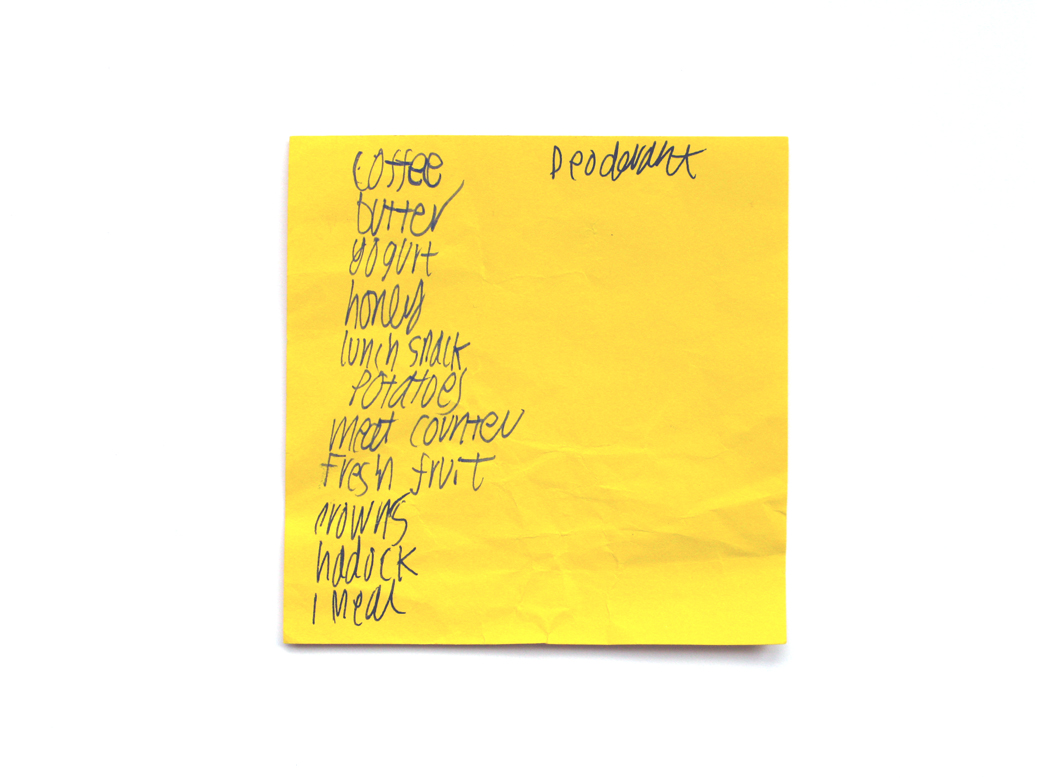 coffee
butter
yogurt
honey
lunch snack
potatoes
meat counter
fresh fruit
hadock
1 meal
Deoderant